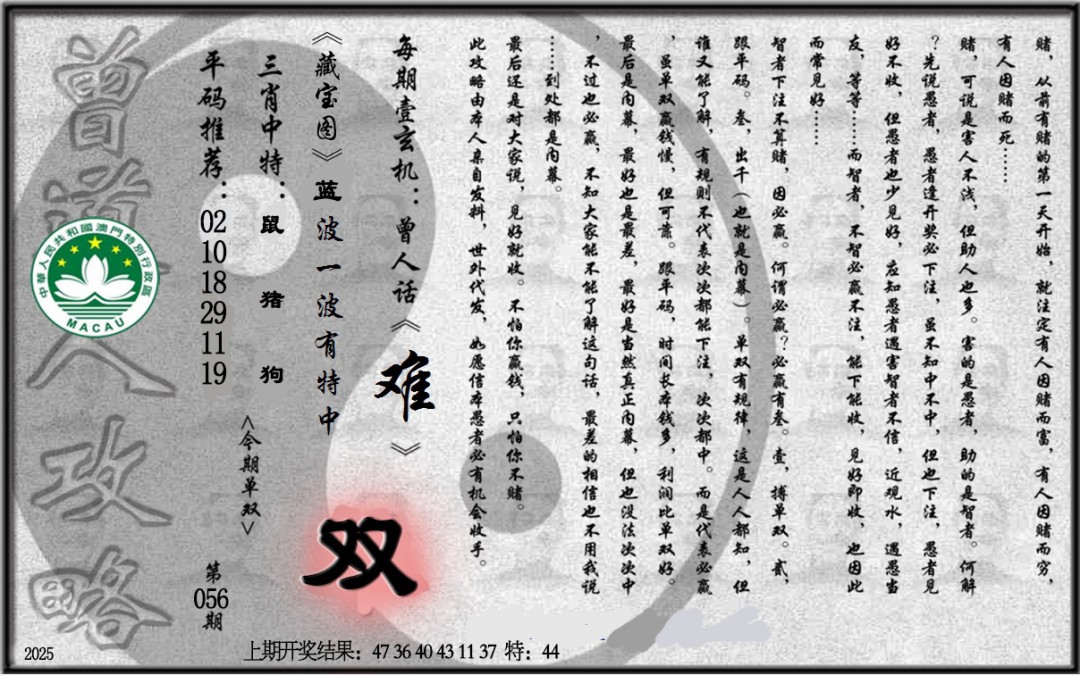 赌，从前有赌的第一天开始，就注定有人因赌而富，有人因赌而穷，
有人因赌而死……
赌，可说是害人不浅，但助人也多。害的是愚者，助的是智者。何解
？先说愚者，愚者逢开奖必下注，虽不知中不中，但也下注，愚者见
好不收，但愚者也少见好，应知愚者遇害智者不信，近观水，遇愚当
友，等等……而智者，不智必赢不注，能下能收，见好即收，也因此
而常见好……
智者下注不算赌，因必赢。何谓必赢？必赢有叁。壹，搏单双。贰，
跟平码。叁，出千（也就是内幕）。单双有规律，这是人人都知，但
谁又能了解，有规则不代表次次都能下注，次次都中。而是代表必赢
，虽单双赢钱慢，但可靠。跟平码，时间长本钱多，利润比单双好。
最后是内幕，最好也是最差，最好是当然真正内幕，但也没法次次中
，不过也必赢，不知大家能不能了解这句话，最差的相信也不用我说
……到处都是内幕。
最后还是对大家说，见好就收。不怕你赢钱，只怕你不赌。
此攻略由本人亲自发料，世外代发，如愿信本愚者必有机会收手。
每期壹玄机：曾人话《难》
《藏宝图》蓝波一波有特中
双
三肖中特：鼠 猪 狗
<今期单双>
平码推荐：02 10 18 29 11 19
第056期
曾道人攻略
中華人民共和國澳門特別行政區
MACAU
2025
上期开奖结果：47 36 40 43 11 37 特：44